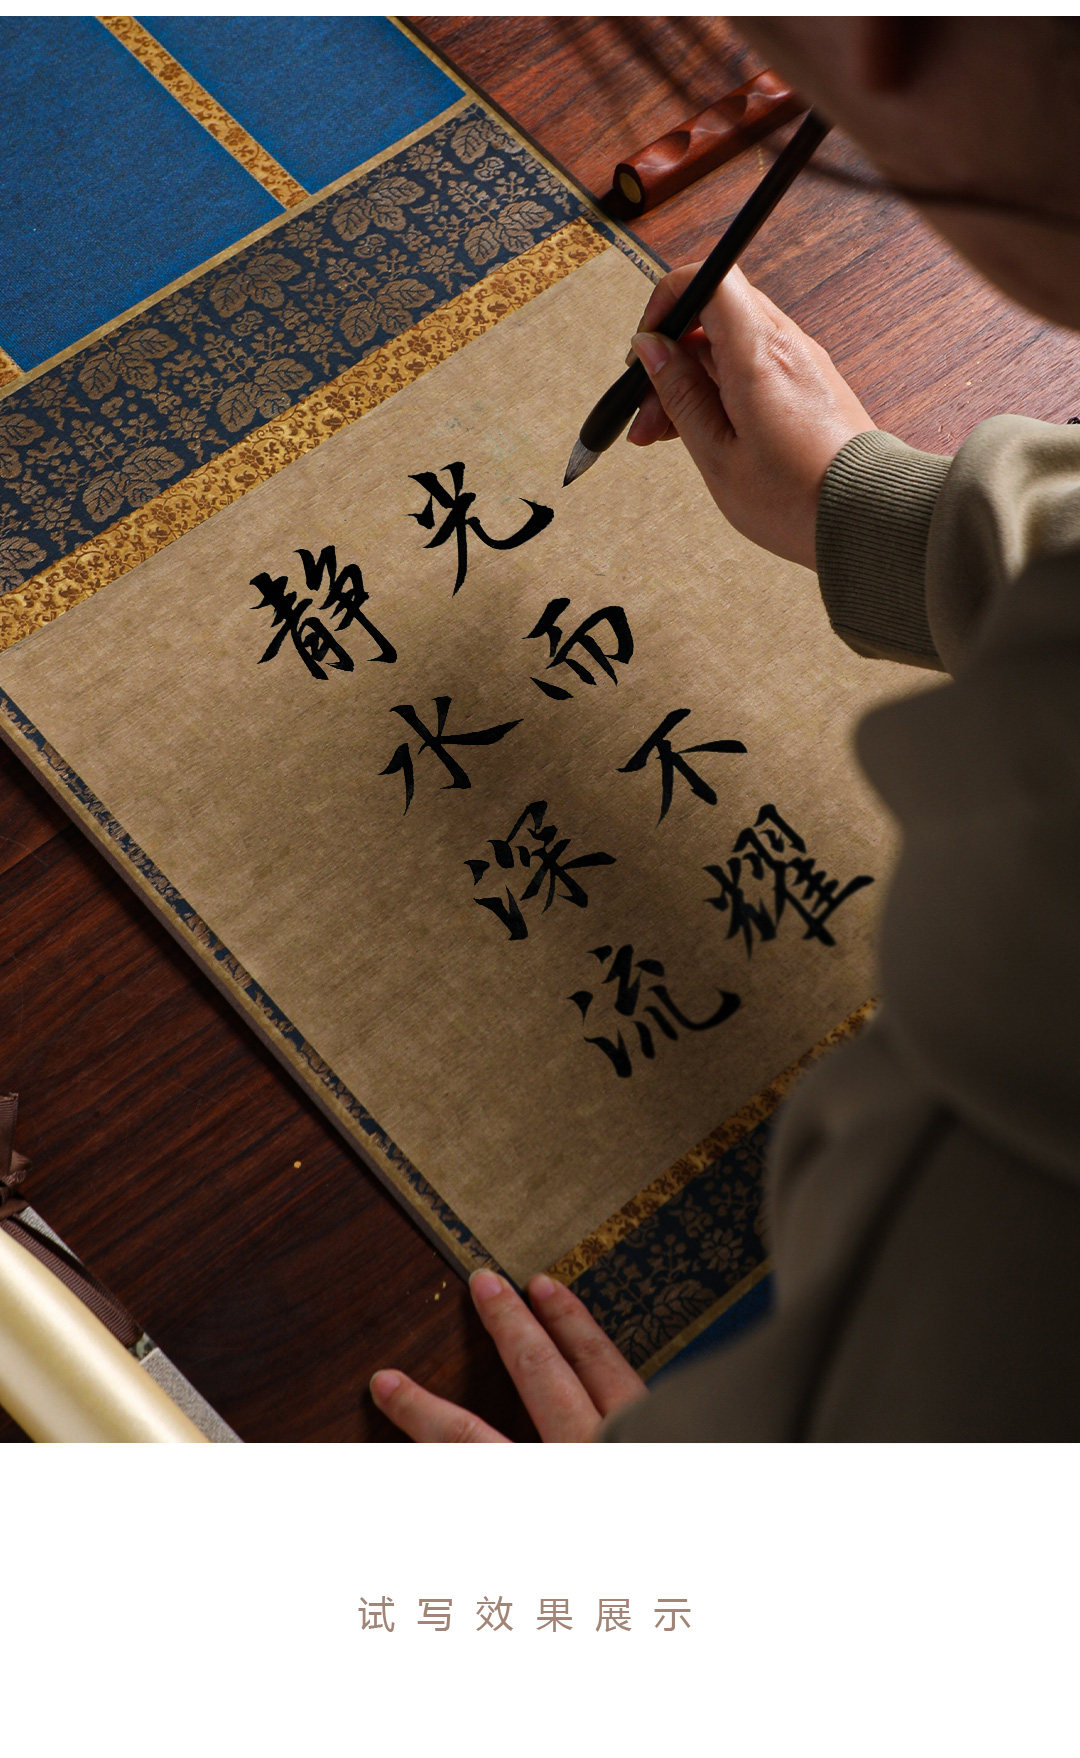 光而不耀
静水深流
试写效果展示